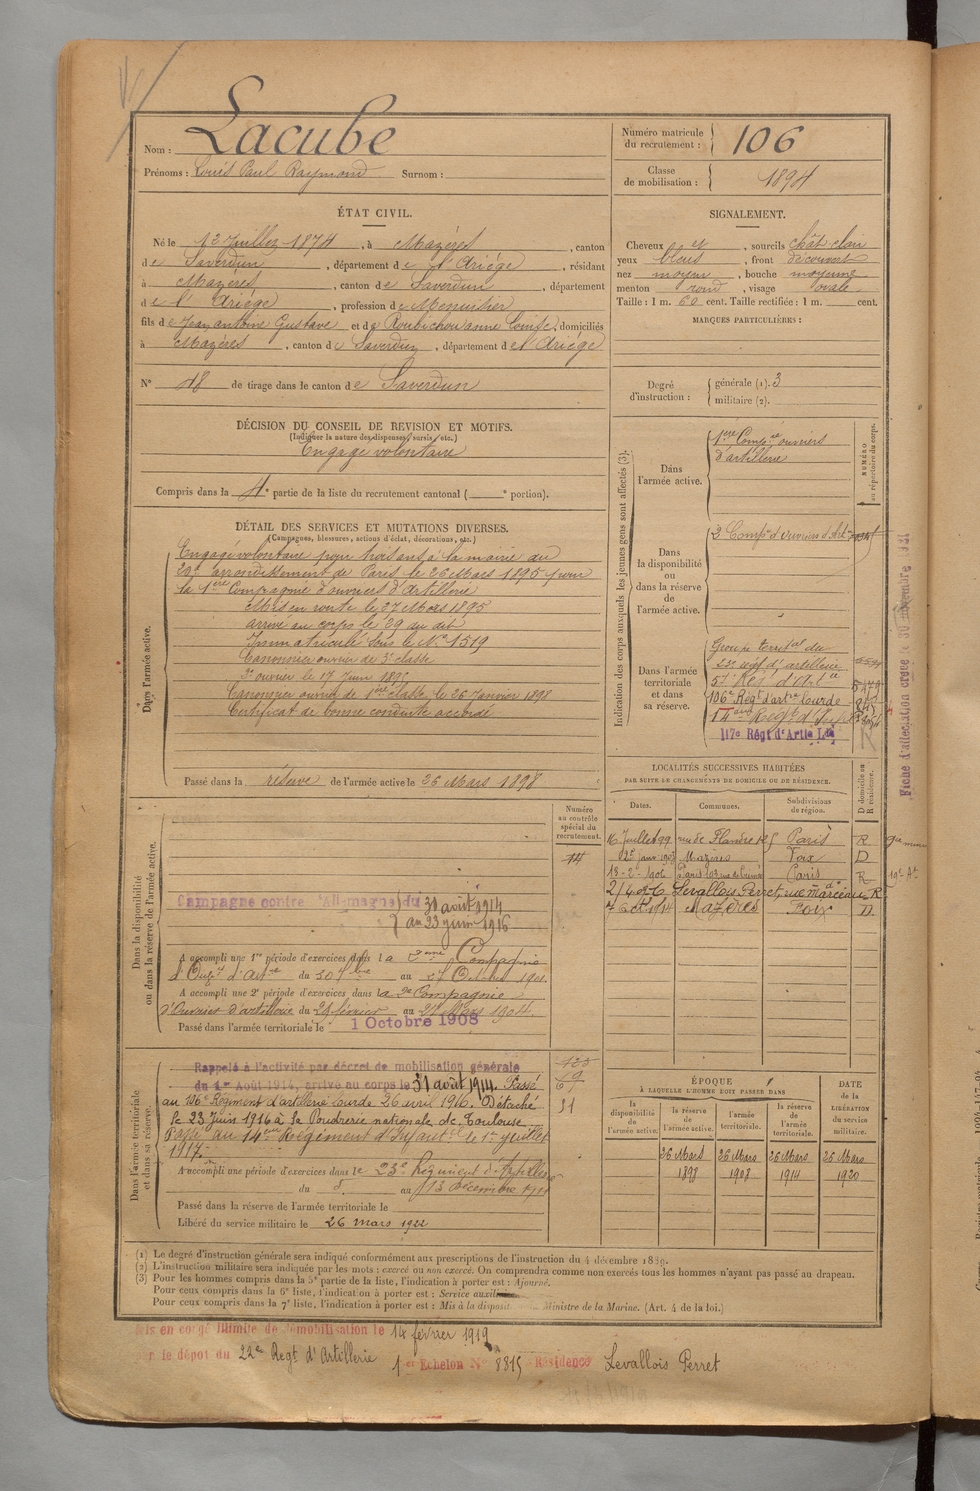 Nom : Lacube
Prénoms : Louis Paul Raymond Surnom :
Numéro matricule du recrutement : 106
Classe de mobilisation : 1894
ÉTAT CIVIL.
Né le 12 Juillet 1874, à Mazères, canton
de Saverdun, département de l'Ariège, résidant
à Mazères, canton de Saverdun, département
de l'Ariège, profession de Menuisier
fils de Jean antoine Gustave et de Roubichou anne Louise, domiciliés
à Mazères, canton de Saverdun, département de l'Ariège
N° 18 de tirage dans le canton de Saverdun
SIGNALEMENT.
Cheveux et, sourcils chât. clair
yeux bleus, front découvert
nez moyen, bouche moyenne
menton rond, visage ovale
Taille : 1 m. 60 cent. Taille rectifiée : 1 m. cent.
MARQUES PARTICULIÈRES :
Degré d'instruction : générale (1). 3
militaire (2).
DÉCISION DU CONSEIL DE REVISION ET MOTIFS.
(Indiquer la nature des dispenses, sursis, etc.)
Engagé volontaire
Compris dans la 4e partie de la liste du recrutement cantonal ( e portion).
DÉTAIL DES SERVICES ET MUTATIONS DIVERSES.
(Campagnes, blessures, actions d'éclat, décorations, etc.)
Dans l'armée active.
Engagé volontaire pour trois ans à la mairie du
20e arrondissement de Paris le 26 Mars 1895 pour
la 1ère Compagnie d'ouvriers d'Artillerie
Mis en route le 27 Mars 1895
arrivé au corps le 29 du dit
Immatriculé sous le N° 1519
Canonnier ouvrier de 3e classe
Canonnier ouvrier de 1ère classe le 26 Janvier 1898
Certificat de bonne conduite accordé
Passé dans la réserve de l'armée active le 26 Mars 1898
Indication des corps auxquels les jeunes gens sont affectés (3).
NUMÉRO au répertoire du corps.
Dans l'armée active.
1ère Compie ouvriers
d'artillerie
Dans la disponibilité ou dans la réserve de l'armée active.
2 Compie d'ouvriers d'Artie
Dans l'armée territoriale et dans sa réserve.
Groupe territal du
23e régt d'artillerie
57 Rég. d'Artie
106e Régt d'artie lourde
14eme Régt d'Inf
117e Régt d'Artie Lde
Fiche d'affectation créée le 30 novembre 1921
LOCALITÉS SUCCESSIVES HABITÉES
PAR SUITE DE CHANGEMENTS DE DOMICILE OU DE RÉSIDENCE.
Dates. Communes. Subdivisions de région. D domicile ou R résidence.
16 Juillet 99 rue de Flandre Paris R
Janv 1903 Mazères Foix D
13-2-1906 Paris Paris R
Levallois Perret, rue Marceau R
7 oct. 1914 Mazères Foix D
Numéro au contrôle spécial du recrutement.
14
Dans la disponibilité ou dans la réserve de l'armée active.
Campagne contre l'Allemagne du 31 août 1914
au 23 juin 1916
A accompli une 1re période d'exercices dans la 2eme Compagnie
A accompli une 2e période d'exercices dans la 2e Compagnie
d'Ouvriers d'artillerie du 29 février au 27 Mars 1904.
Passé dans l'armée territoriale le 1 Octobre 1908
Dans l'armée territoriale et dans sa réserve.
Rappelé à l'activité par décret de mobilisation générale
du 1er Août 1914, arrivé au corps le 31 août 1914. Passé
au 106e Régiment d'artillerie lourde 26 avril 1916. Détaché
le 23 Juin 1916 à la Poudrerie nationale de Toulouse.
Passé au 14eme Régiment d'Infantie le 1er juillet
1917.
A accompli une période d'exercices dans le 23e Régiment d'Artillerie
du au 13 décembre
Passé dans la réserve de l'armée territoriale le
Libéré du service militaire le 26 mars 1922
ÉPOQUE
À LAQUELLE L'HOMME DOIT PASSER DANS
la disponibilité de l'armée active. la réserve de l'armée active. l'armée territoriale. la réserve de l'armée territoriale.
DATE de la LIBÉRATION du service militaire.
26 Mars 26 Mars 26 Mars 26 Mars
1898 1908 1914 1920
(1) Le degré d'instruction générale sera indiqué conformément aux prescriptions de l'instruction du 4 décembre 1889.
(2) L'instruction militaire sera indiquée par les mots : exercé ou non exercé. On comprendra comme non exercés tous les hommes n'ayant pas passé au drapeau.
(3) Pour les hommes compris dans la 5e partie de la liste, l'indication à porter est : Ajourné.
Pour ceux compris dans la 6e liste, l'indication à porter est : Service
Pour ceux compris dans la 7e liste, l'indication à porter est : Mis à la Ministre de la Marine. (Art. 4 de la loi.)
Mis en congé illimité de démobilisation le 14 février 1919
le dépôt du 22e Régt d'Artillerie 1er Echelon N° 8815 Résidence Levallois Perret